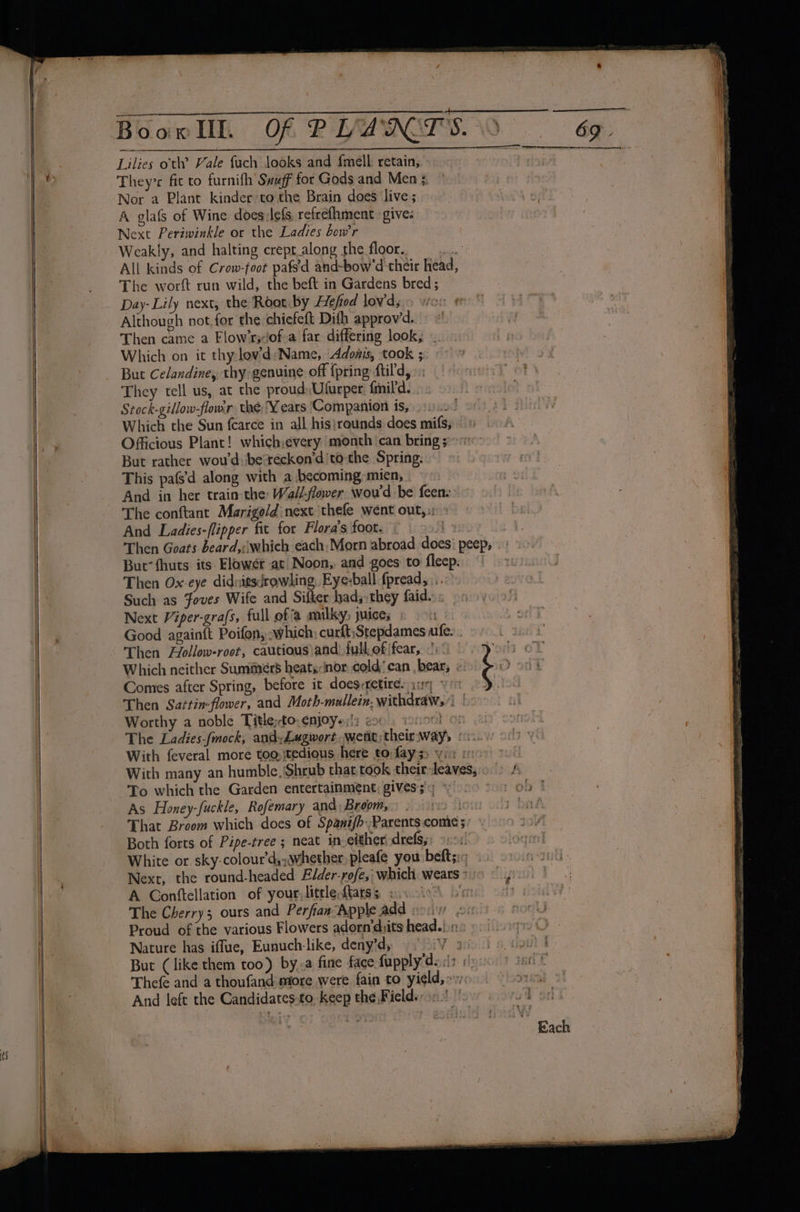 Book III. Of PLANTS. 69.
Lilies o'th' Vale ſuch looks and ſmell retain,
They'r fit to furniſh Snuff for Gods and Men;
Nor a Plant kinder to the Brain does live;
A glaſs of Wine does leſs refreſhment give.
Next Periwinkle or the Ladies bow'r
Weakly, and halting crept along the floor.
All kinds of Crow-foot paſs'd and bow'd their head,
The worſt run wild, the beſt in Gardens bred;
Day-Lily next, the Root by Heſiod lov'd,
Although not for the chiefeſt Diſh approv'd.
Then came a Flow'r, of a far differing look,
Which on it thy lov'd Name, Adonis, took;
But Celandine, thy genuine off ſpring ſtil'd,
They tell us, at the proud Uſurper ſmil'd.
Stock-gillow-flow'r the Years Companion is,
Which the Sun ſcarce in all his rounds does miſs,
Officious Plant! which every month can bring;
But rather wou'd be reckon'd to the Spring.
This paſs'd along with a becoming mien,
And in her train the Wall-flower wou'd be ſeen.
The conſtant Marigold next theſe went out,
And Ladies-ſlipper fit for Flora's foot.
Then Goats beard, which each Morn abroad does peep,
But ſhuts its Flower at Noon, and goes to ſleep.
Then Ox-eye did its rowling Eye-ball ſpread,
Such as Joves Wife and Siſter had, they ſaid.
Next Viper-graſs, full of a milky juice,
Good againſt Poiſon, which curſt Stepdames uſe.
Then Hollow-root, cautious and full of fear,
Which neither Summers heat, nor cold can bear,
Comes after Spring, before it does retire.
Then Sattin-flower, and Moth-mullein, withdraw,
Worthy a noble Title to enjoy.
The Ladies-ſmock, and Lugwort went their way,
With ſeveral more too tedious here to ſay;
With many an humble Shrub that took their leaves,
To which the Garden entertainment gives;
As Honey-ſuckle, Roſemary and Broom,
That Broom which does of Spaniſh Parents come;
Both ſorts of Pipe-tree; neat in either dreſs,
White or sky-colour'd, whether pleaſe you beſt;
Next, the round-headed Elder-roſe, which wears
A Conſtellation of your little ſtars;
The Cherry; ours and Perſian Apple add
Proud of the various Flowers adorn'd its head.
Nature has iſſue, Eunuch-like, deny'd,
But (like them too) by a fine face ſupply'd.
Theſe and a thouſand more were fain to yield,
And left the Candidates to keep the Field.
Each